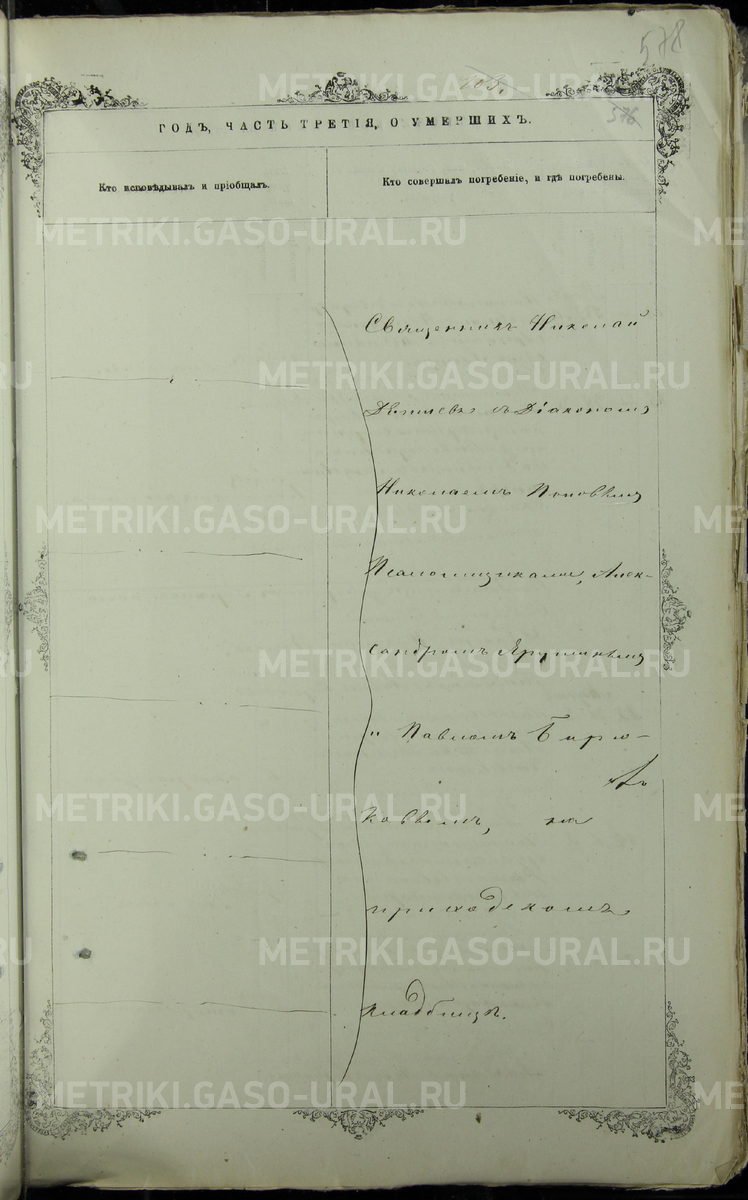 578
105.
576
ГОДЪ, ЧАСТЬ ТРЕТІЯ, О УМЕРШИХЪ.
Кто исповѣдывалъ и пріобщалъ.
Кто совершалъ погребеніе, и гдѣ погребены.
Священникъ Николай
съ Діакономъ
Николаемъ Поповымъ
Псаломщиками, Алек-
сандромъ
и Павломъ Бирю-
ковымъ, на
приходскомъ
кладбищѣ.
METRIKI.GASO-URAL.RU